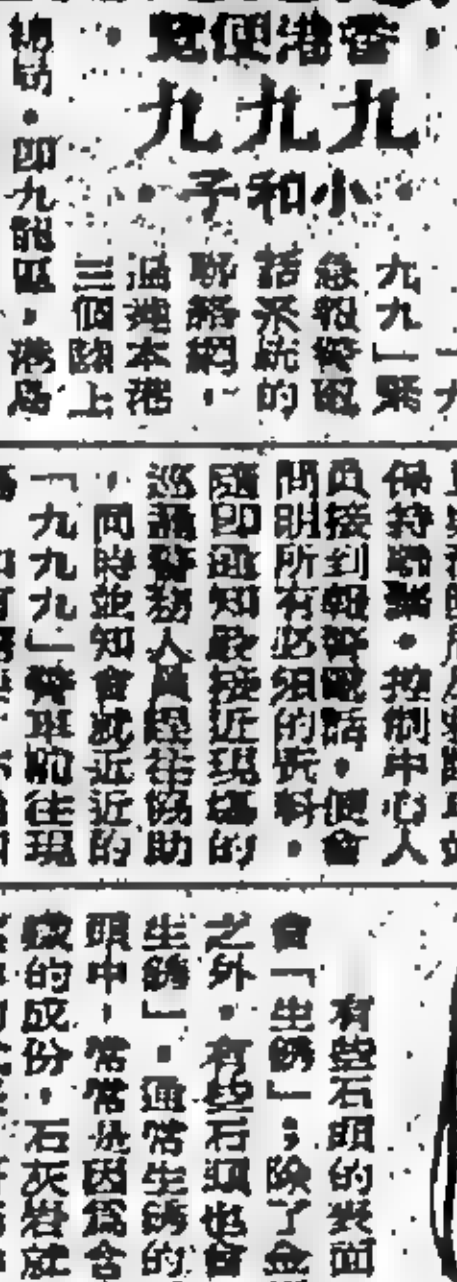 香港便覽
九九九
小和子
九九」緊
急報警電
話系統的
聯絡網，
遍達本港
三個陸上
即九龍區，港島
保持聯繫。控制中心人
員接到報警電話，便會
問明所有必須的資料。
隨即通知最接近現場的
巡邏警務人員趕往協助
，同時並知會就近的
「九九九」警車前往現
有些石頭的表面
會「生銹」；除了金
之外，有些石頭也會
生銹」。通常生銹的
中，常常是因為含
的成份。石灰岩就